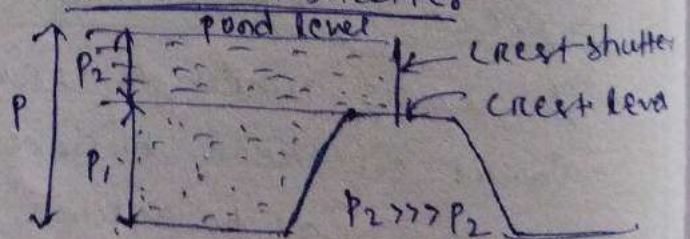 pond level
P2
crest shutter
crest leva
P
P1
P2 >>> P2